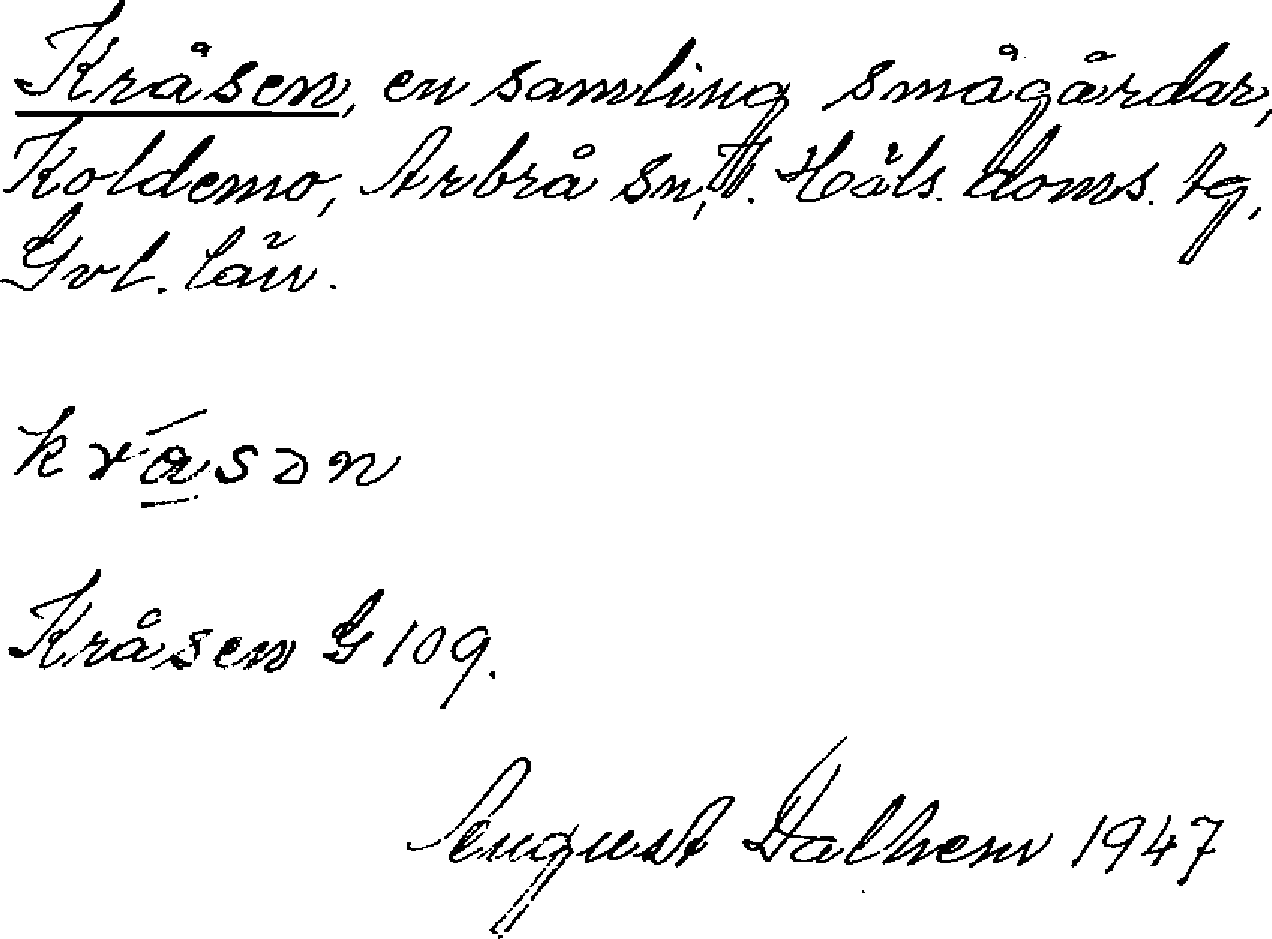 Kråsen, en samling smågårdar,
Koldemo, Arbrå sn, V. Häls. doms. tg,
Gvl. län.
kråsən
Kråsen G 109.
August Dalhem 1947